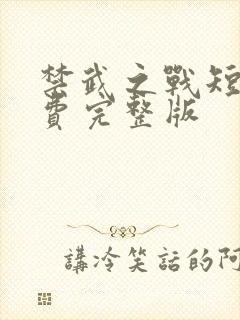 禁武之戰短
費完整版
講冷笑話的阿